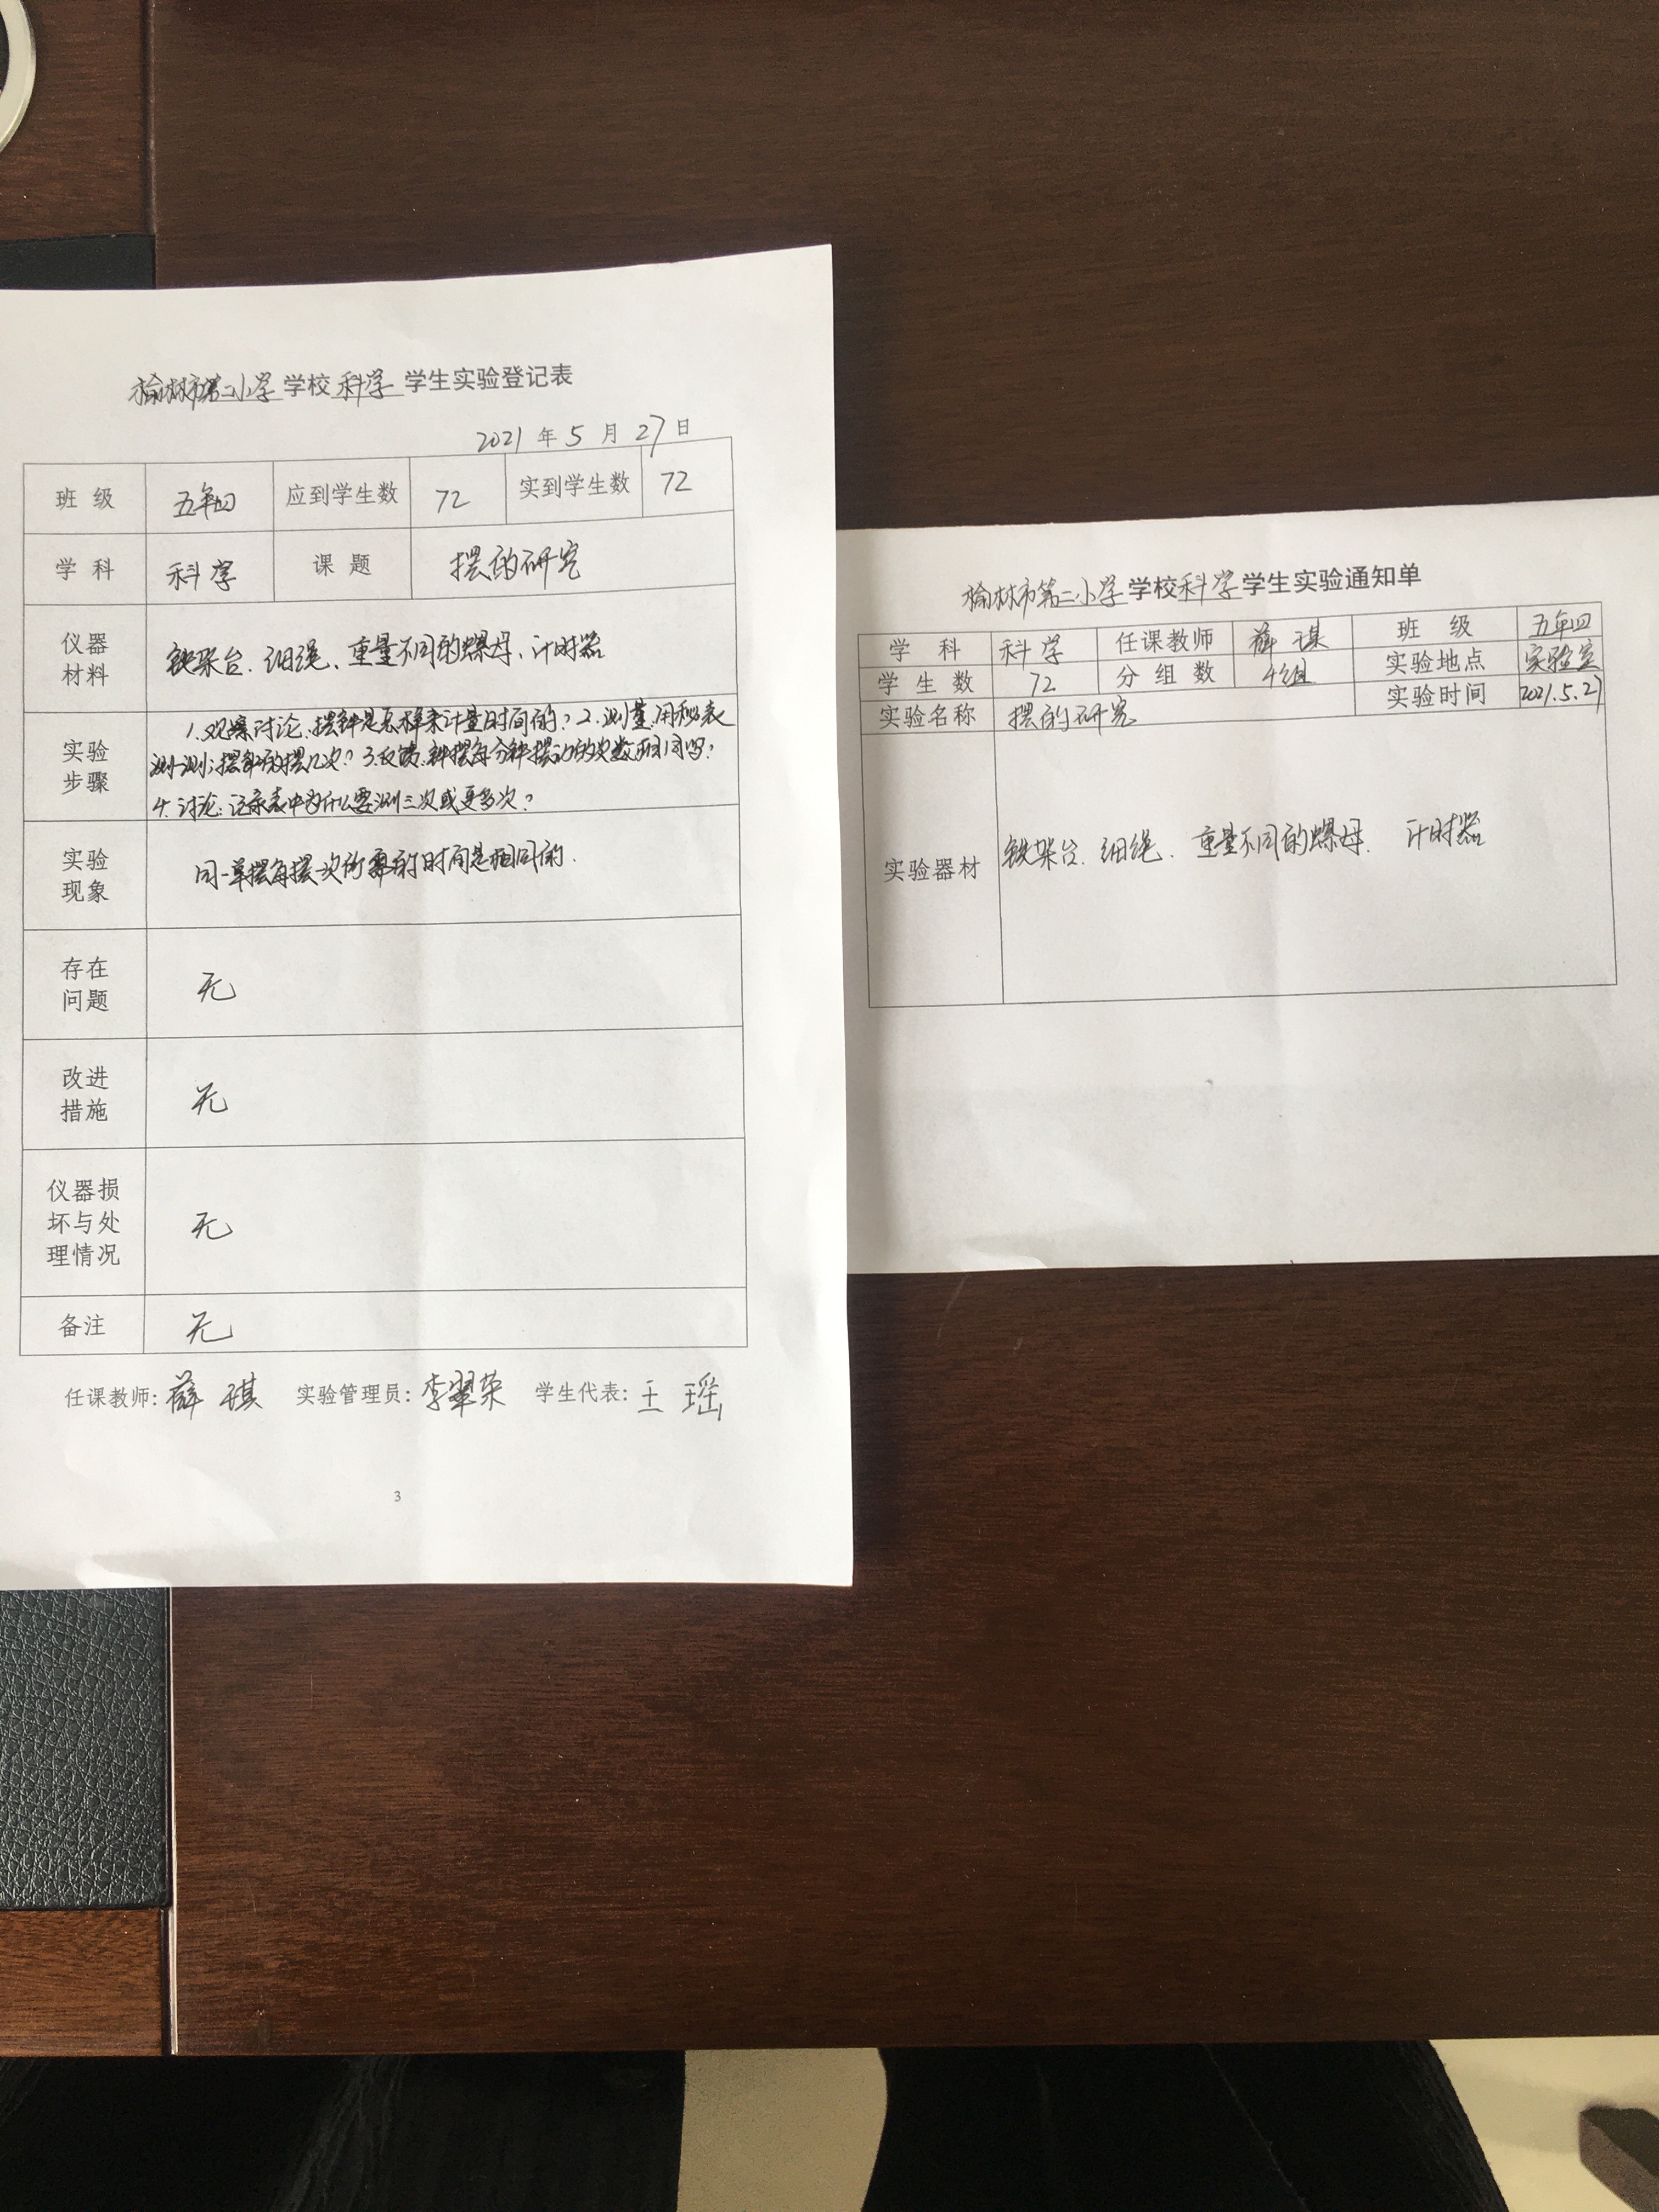 榆林市第二小学学校科学学生实验登记表
2021年5月27日
班级 五年四 应到学生数 72 实到学生数 72
学科 科学 课题 摆的研究
仪器材料 铁架台、细绳、重量不同的螺母、计时器
实验步骤 1.观察讨论:摆钟是怎样来计量时间的?2.测量:用秒表
测一测:摆钟的摆几次?3.反馈:钟摆每分钟摆动的次数相同吗?
4.讨论:记录表中为什么要测三次或更多次?
实验现象 同一单摆每摆一次所需的时间是相同的.
存在问题 无
改进措施 无
仪器损坏与处理情况 无
备注 无
任课教师:薛琪 实验管理员:李翠荣 学生代表:王瑶
3
榆林市第二小学学校科学学生实验通知单
学科 科学 任课教师 薛琪 班级 五年四
学生数 72 分组数 4组 实验地点 实验室
实验名称 摆的研究 实验时间 2021.5.27
实验器材 铁架台、细绳、重量不同的螺母、计时器